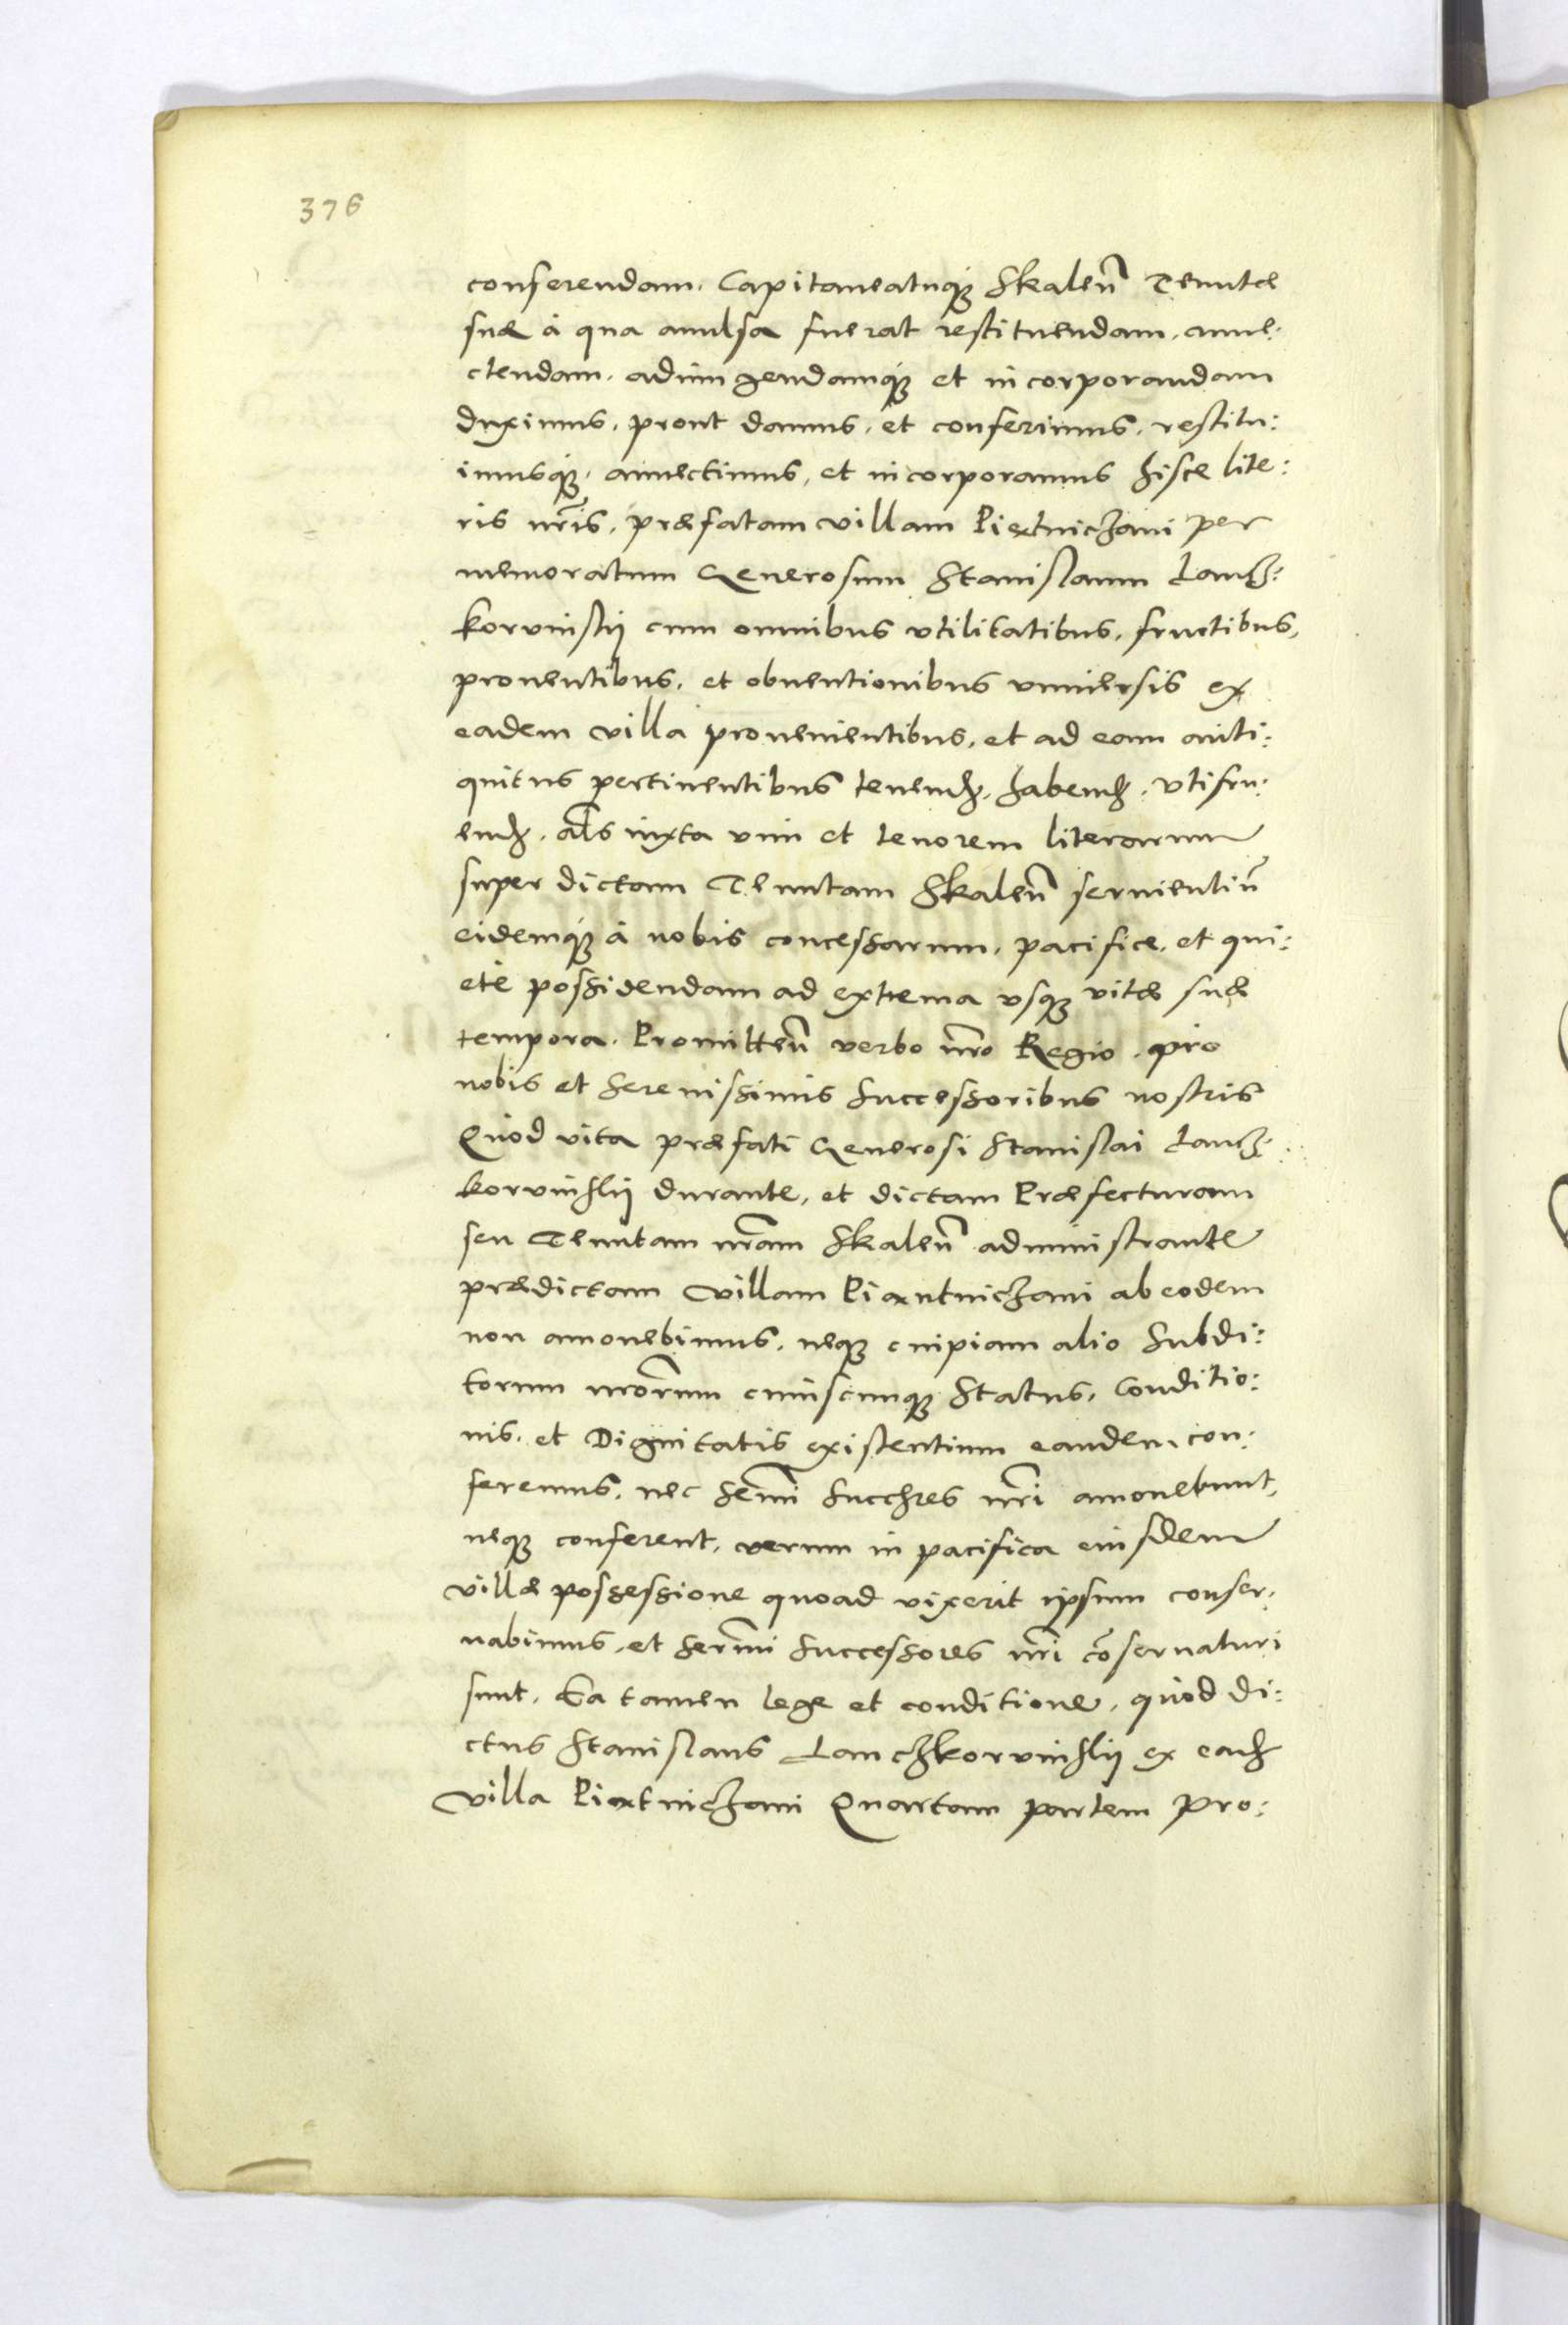 376
conferendam. Capitaneatuq꜕ Skaleñ Tenutæ
suæ à qua auulsa fuerat restituendam. anne:
ctendam. adiungendamq꜕ et incorporandam
duximus. prout damus, et conferimus, restitu:
imusq꜕. annectimus, et incorporamus hisce lite:
ris nris̃. præfatam villam Piętniczani per
memoratum Generosum Stanislaum Lancz:
korvinskij cum omnibus vtilitatibus, fructibus,
prouentibus, et obuentionibus vniuersis ex
eadem villa prouenientibus, et ad eam anti:
quitus pertinentibus tenendꝫ, habendꝫ. vtifru:
endꝫ. als iuxta vim et tenorem literarum
super dictam Tenutam Skaleñ seruientiũ
eidemq꜕ à nobis concessarum, pacifice, et qui:
etè possidendam ad extrema vsq꜕ vitæ suæ
tempora. Promitteñ verbo nrõ Regio. pro
nobis et Serenissimis Successoribus nostris
Quòd vita præfati Generosi Stanislai Lancz:
korvinskij durante, et dictam Præfecturam
seu Tenutam nrãm Skaleñ administrante
prædictam Villam Piantniczani ab eodem
non amouebimus. neq꜕ cuipiam alio Subdi:
torum nrõrum cuiuscunq꜕ Status, Conditio:
nis. et Dignitatis existentium eandem con:
feremus. nec Semi̅ Succẽres nrĩ amouebunt,
neq꜕ conferent, verum in pacifica eiusdem
villæ possessione quoad vixerit ipsum conser:
uabimus, et Sermĩ Successores nrĩ cõseruaturi
sunt. Ea tamen lege et conditione, quòd di:
ctus Stanislaus Lanczkorvinskij ex eadꝫ
villa Piętniczani Quartam partem pro: